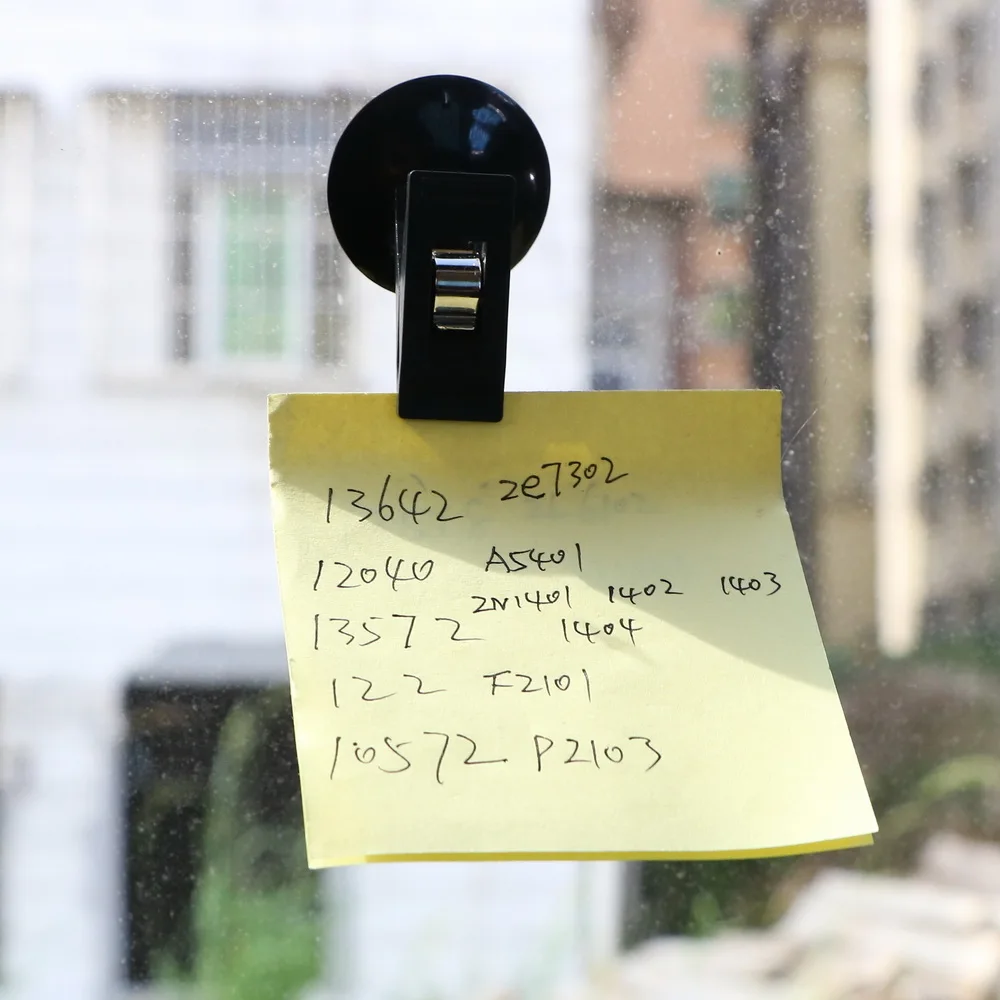 13642 ze7302
12040 A5401
2N1401 1402 1403
13572 1404
122 F2101
10572 P2103